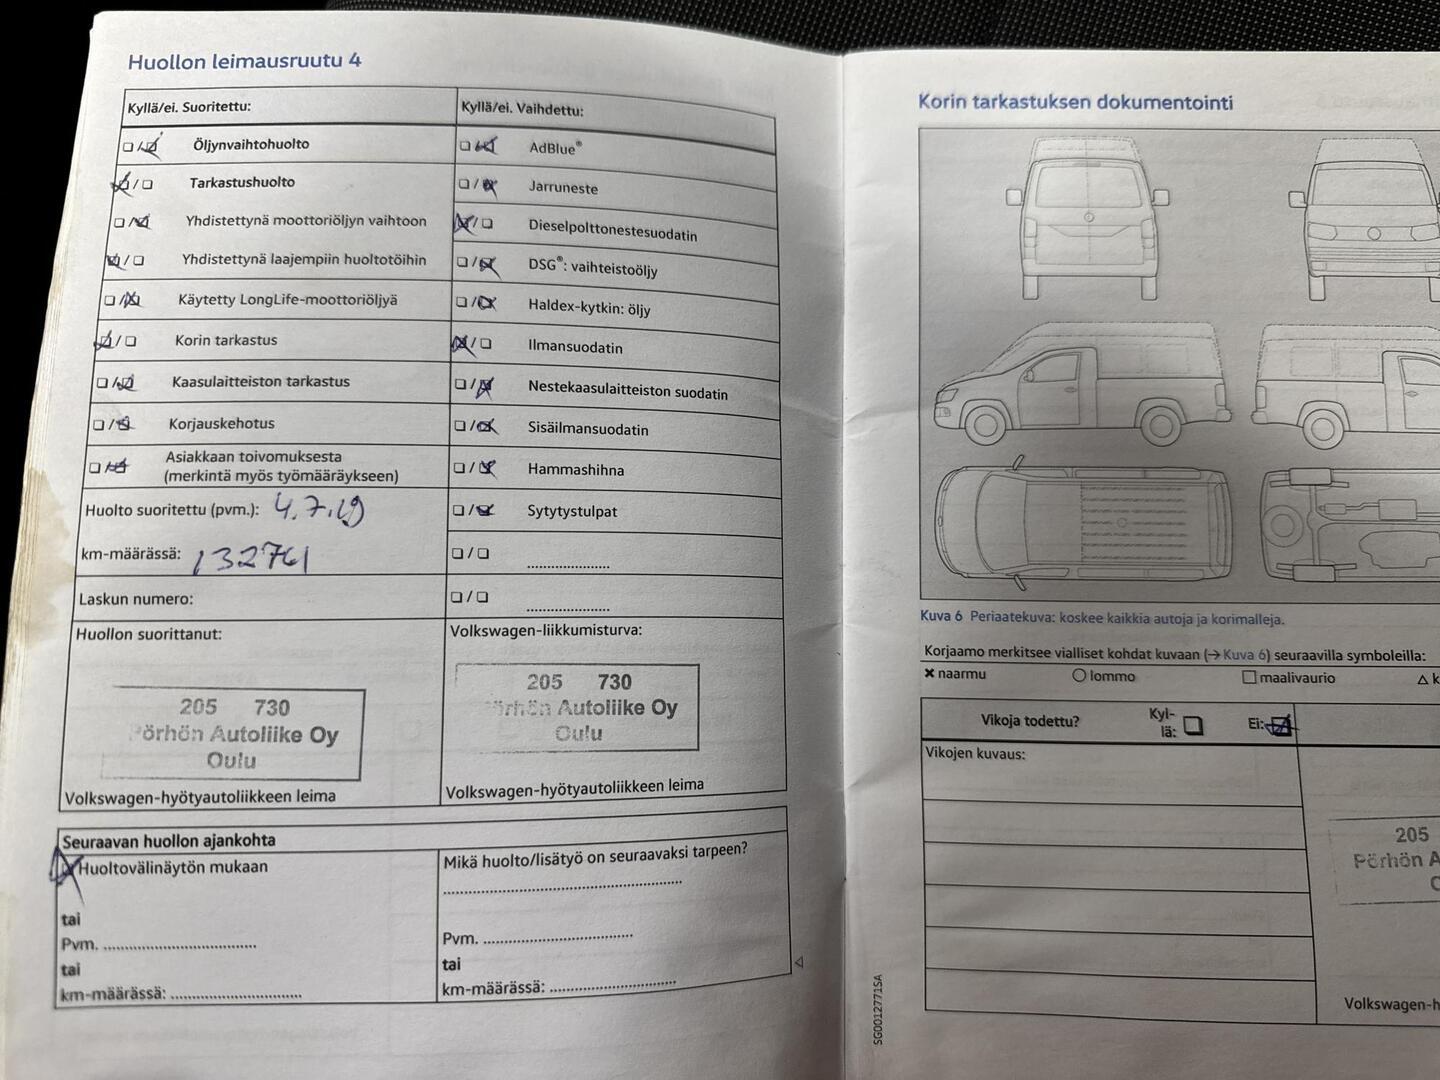 Huollon leimausruutu 4
Kyllä/ei. Suoritettu:
Öljynvaihtohuolto
Tarkastushuolto
Yhdistettynä moottoriöljyn vaihtoon
Yhdistettynä laajempiin huoltotöihin
Käytetty LongLife-moottoriöljyä
Korin tarkastus
Kaasulaitteiston tarkastus
Korjauskehotus
Asiakkaan toivomuksesta
(merkintä myös työmääräykseen)
Huolto suoritettu (pvm.): 4.7.19
km-määrässä: 132761
Laskun numero:
Huollon suorittanut:
205 730
Pörhön Autoliike Oy
Oulu
Volkswagen-hyötyautoliikkeen leima
Kyllä/ei. Vaihdettu:
AdBlue®
Jarruneste
Dieselpolttonestesuodatin
DSG®: vaihteistoöljy
Haldex-kytkin: öljy
Ilmansuodatin
Nestekaasulaitteiston suodatin
Sisäilmansuodatin
Hammashihna
Sytytystulpat
Volkswagen-liikkumisturva:
205 730
Pörhön Autoliike Oy
Oulu
Volkswagen-hyötyautoliikkeen leima
Seuraavan huollon ajankohta
Huoltovälinäytön mukaan
tai
Pvm.
tai
km-määrässä:
Mikä huolto/lisätyö on seuraavaksi tarpeen?
Pvm.
tai
km-määrässä:
Korin tarkastuksen dokumentointi
Kuva 6 Periaatekuva: koskee kaikkia autoja ja korimalleja.
Korjaamo merkitsee vialliset kohdat kuvaan (→ Kuva 6) seuraavilla symboleilla:
naarmu lommo maalivaurio
Vikoja todettu? Kyl-
lä: Ei:
Vikojen kuvaus:
205
Pörhön A
Volkswagen-h
SG0012771SA